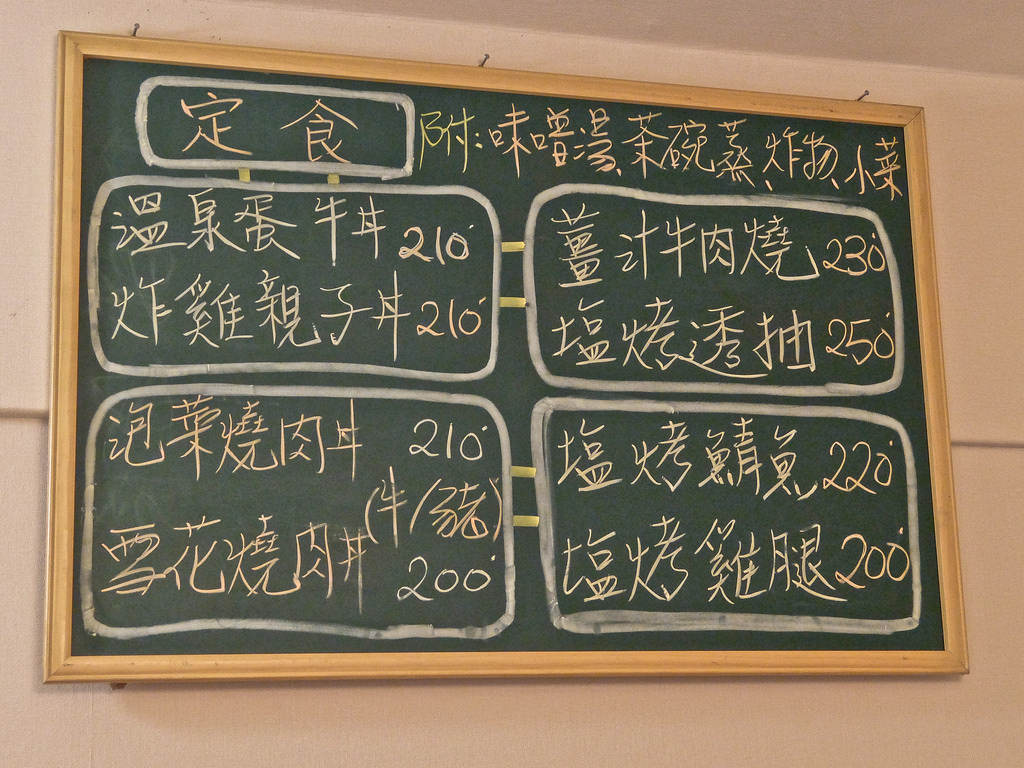 定食 附:味噌湯、茶碗蒸、炸物、小菜
溫泉蛋牛丼 210
炸雞親子丼 210
薑汁牛肉燒 230
塩烤透抽 250
泡菜燒肉丼 210
(牛/豬)
雪花燒肉丼 200
塩烤鯖魚 220
塩烤雞腿 200